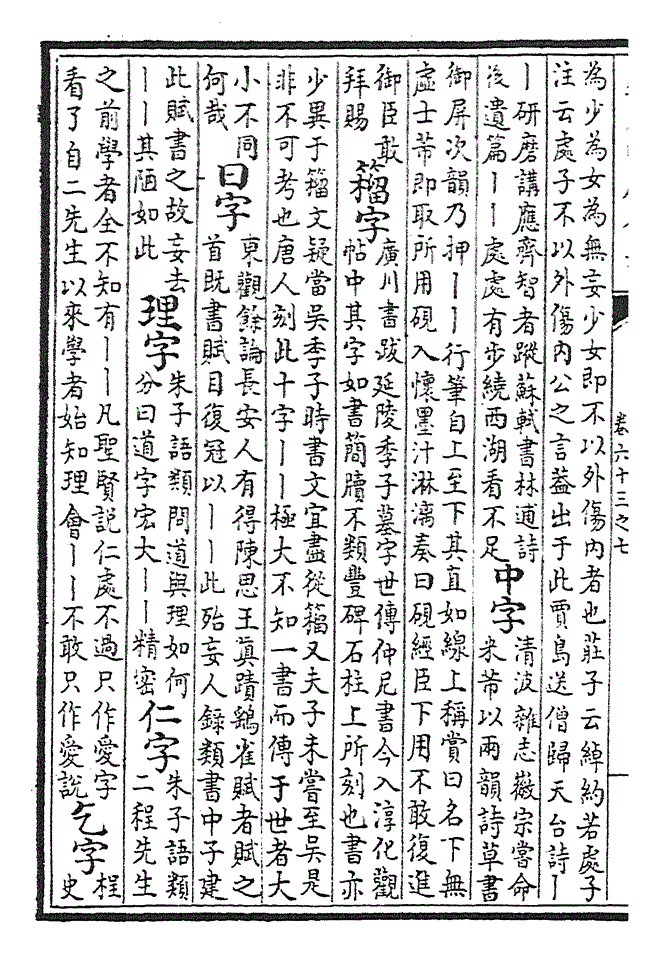 為少為女為無妄少女即不以外傷内者也莊子云綽約若處子
注云處子不以外傷内公之言葢出于此賈島送僧歸天台詩丨
丨研磨講應齊智者蹤蘇軾書林逋詩
後遺篇丨丨處處有步繞西湖看不足
中字
清波雜志徽宗嘗命
米芾以兩韻詩草書
御屏次韻乃押丨丨行筆自上至下其直如線上稱賞曰名下無
虚士芾即取所用硯入懷墨汁淋漓奏曰硯經臣下用不敢復進
御臣敢
拜賜
籀字
廣川書跋延陵季子墓字世傳仲尼書今入淳化觀
帖中其字如書簡牘不類豐碑石柱上所刻也書亦
少異于籀文疑當吳季子時書文宜盡從籀又夫子未嘗至吳是
非不可考也唐人刻此十字丨丨極大不知一書而傳于世者大
小不同
何哉
曰字
東觀餘論長安人有得陳思王真蹟鷂雀賦者賦之
首既書賦目復冠以丨丨此殆妄人錄類書中子建
此賦書之故妄去
丨丨其陋如此
理字
朱子語類問道與理如何
分曰道字宏大丨丨精密
仁字
朱子語類
二程先生
之前學者全不知有丨丨凡聖賢說仁處不過只作愛字
看了自二先生以來學者始知理會丨丨不敢只作愛說
乞字
桯
史
卷六十三之七